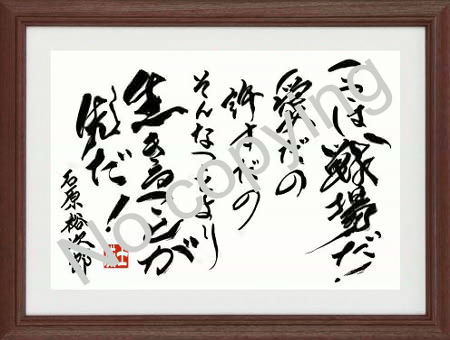 ここは戦場だ!
愛だの
許すだの
そんなことより
生きることが
先だ!
石原裕次郎
No copying